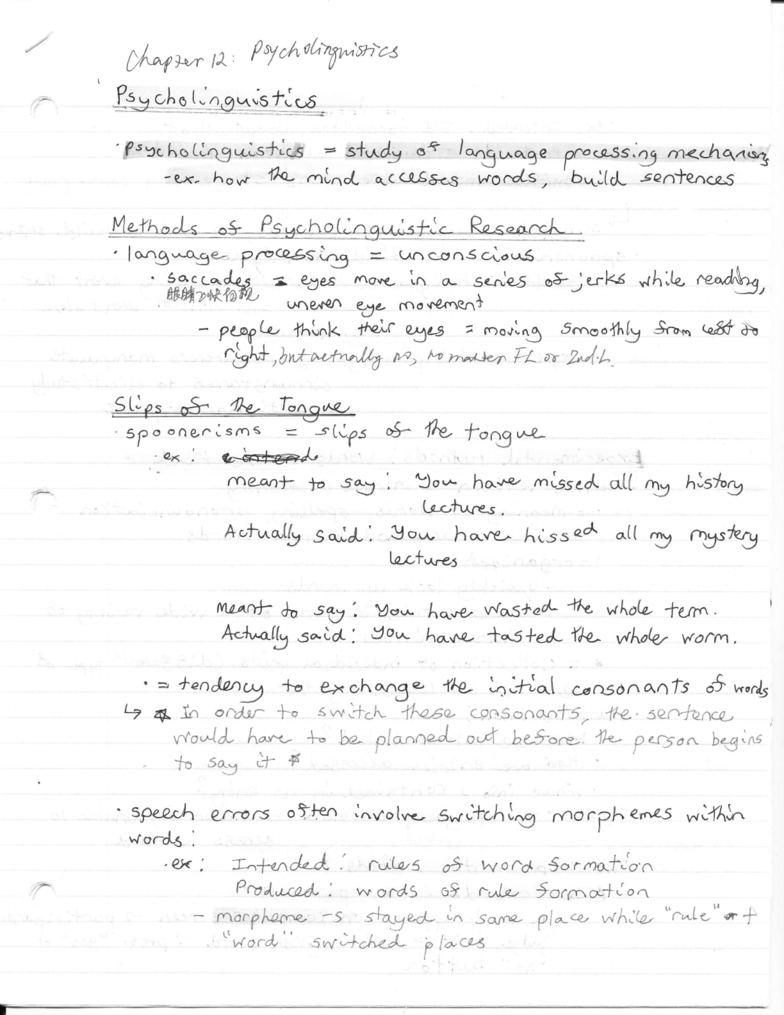 Chapter 12: Psycholinguistics
Psycholinguistics
· psycholinguistics = study of language processing mechanisms
-ex. how the mind accesses words, build sentences
Methods of Psycholinguistic Research
· language processing = unconscious
· saccades = eyes move in a series of jerks while reading,
眼睛
uneven eye movement
- people think their eyes = moving smoothly from left to
right, but actually no, no matter FL or 2nd L.
Slips of the Tongue
· spoonerisms = slips of the tongue
· ex:
meant to say: You have missed all my history
lectures.
Actually said: You have hissed all my mystery
lectures
Meant to say: You have wasted the whole term.
Actually said: You have tasted the whole worm.
· = tendency to exchange the initial consonants of words
↳ * In order to switch these consonants, the sentence
would have to be planned out before the person begins
to say it *
· speech errors often involve switching morphemes within
words:
· ex: Intended: rules of word formation
Produced: words of rule formation
- morpheme -s stayed in same place while "rule" +
"word" switched places